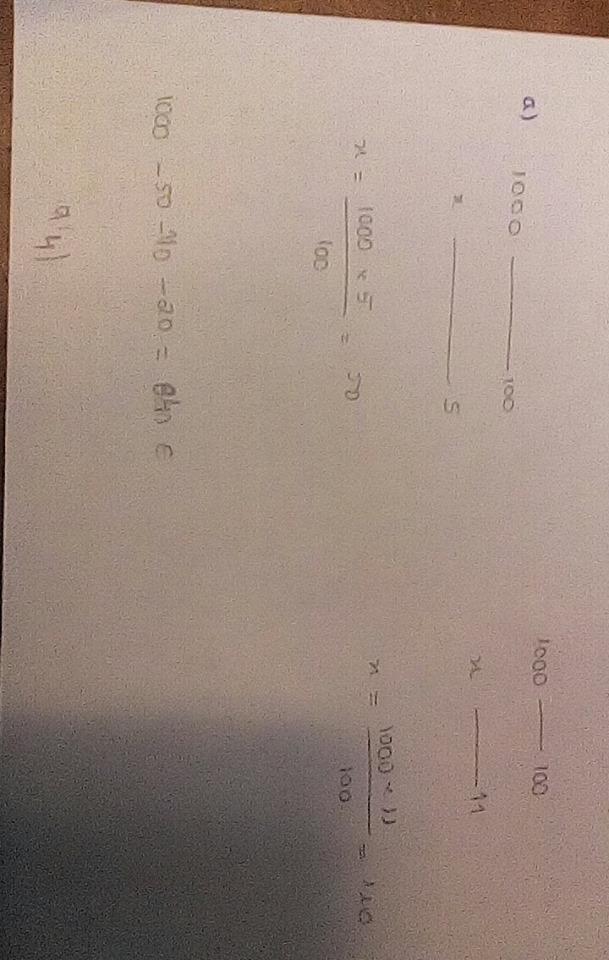 a)
1000 —— 100
x —— 5
x = 1000 × 5 / 100 = 50
1000 —— 100
x —— 11
x = 1000 × 11 / 100 = 110
1000 - 50 - 110 - 20 = 840 €